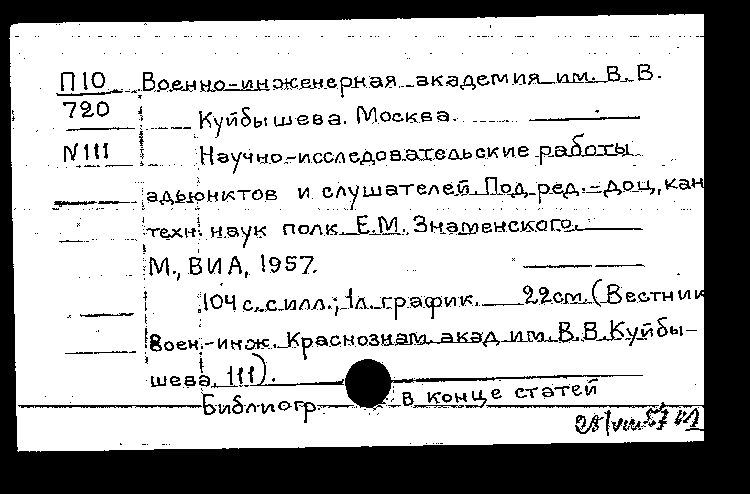 П10 Военно-инженерная академия им. В. В.
720 Куйбышева. Москва.
N111 Научно-исследовательские работы
адъюнктов и слушателей. Под ред. доц, кан
техн. наук полк. Е.М. Знаменского.
М., ВИА, 1957.
104 с. с илл.; 1л. график. 22см. (Вестник
Воен.-инж. Краснознам. акад им. В.В. Куйбы-
шева, 111).
Библиогр. в конце статей